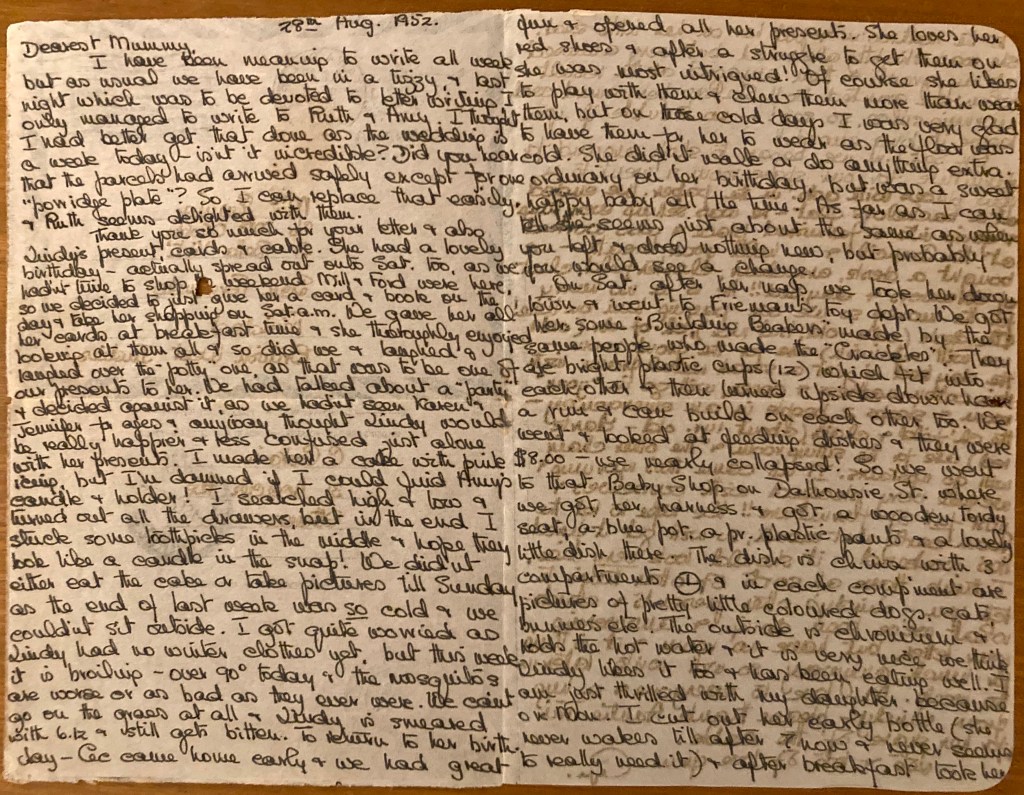 28th Aug. 1952.
Dearest Mummy,
I have been meaning to write all week
but as usual we have been in a tizzy & last
night which was to be devoted to letter writing I
only managed to write to Ruth & Amy. I thought
I had better get that done as the wedding is
a week today – isn't it incredible? Did you hear
that the parcels had arrived safely except for one
"porridge plate"? So I can replace that easily,
& Ruth seems delighted with them.
Thank you so much for your letter & also
Lindy's present, cards & cable. She had a lovely
birthday – actually spread out onto Sat. too, as we
hadn't time to shop weekend Mill & Ford were here,
so we decided to just give her a card & book on the
day & take her shopping on Sat. a.m. We gave her all
her cards at breakfast time & she thoroughly enjoyed
looking at them all & so did we & laughed &
laughed over the "potty" one, as that was to be one of
our presents to her. We had talked about a "party"
& decided against it, as we hadn't seen Karen &
Jennifer for ages & anyway thought Lindy would
be really happier & less confused just alone
with her presents. I made her a cake with pink
icing, but I'm damned if I could find Amy's
candle & holder! I searched high & low &
turned out all the drawers, but in the end I
stuck some toothpicks in the middle & hope they
look like a candle in the snap! We didn't
either eat the cake or take pictures till Sunday
as the end of last week was so cold & we
couldn't sit outside. I got quite worried as
Lindy had no winter clothes yet, but this week
it is broiling – over 90° today & the mosquitos
are worse or as bad as they ever were. We can't
go on the grass at all & Lindy is smeared
with 6.12 & still gets bitten. To return to her birth-
day – Cec came home early & we had great
fun & opened all her presents. She loves her
red shoes & after a struggle to get them on
she was most intrigued! Of course she likes
to play with them & chew them more than wear
them, but on those cold days I was very glad
to have them for her to wear as the floor was
cold. She didn't walk or do anything extra-
ordinary on her birthday, but was a sweet
happy baby all the time. As far as I can
tell she seems just about the same as when
you left & does nothing new, but probably
you would see a change.
On Sat. after her nap we took her down
town & went to Frieman's toy dept. We got
her some "Building Beakers" made by the
same people who made the "Crackles". They
are bright plastic cups (12) which fit into
each other & then turned upside down have
a rim & can build on each other too. We
went & looked at feeding dishes & they were
$8.00 – we nearly collapsed! So we went
to that Baby Shop on Dalhousie St. where
we got her harness & got a wooden toidy
seat, a blue pot, a pr. plastic pants & a lovely
little dish there. The dish is china with 3
compartments & in each compiment are
pictures of pretty little coloured dogs, cats,
bunnies etc. The outside is chromium &
holds the hot water & it is very nice we think
Lindy likes it too & has been eating well. I
am just thrilled with my daughter because
on Mon. I cut out her early bottle (she
never wakes till after 7 now & never seems
to really need it) & after breakfast took her